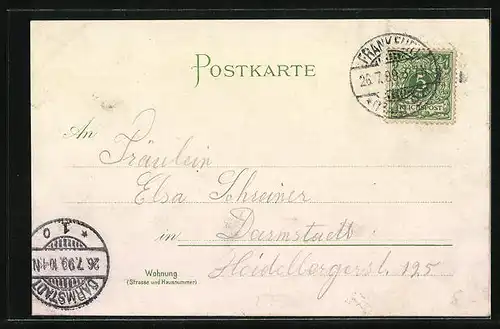 POSTKARTE
FRANKFURT
26.7.99.
5
REICHSPOST
An Fräulein
Elsa Schreiner
in Darmstadt
Wohnung
(Strasse und Hausnummer)
Heidelbergerst. 125
DARMSTADT
26.7.99. 10-11N
* 1 o